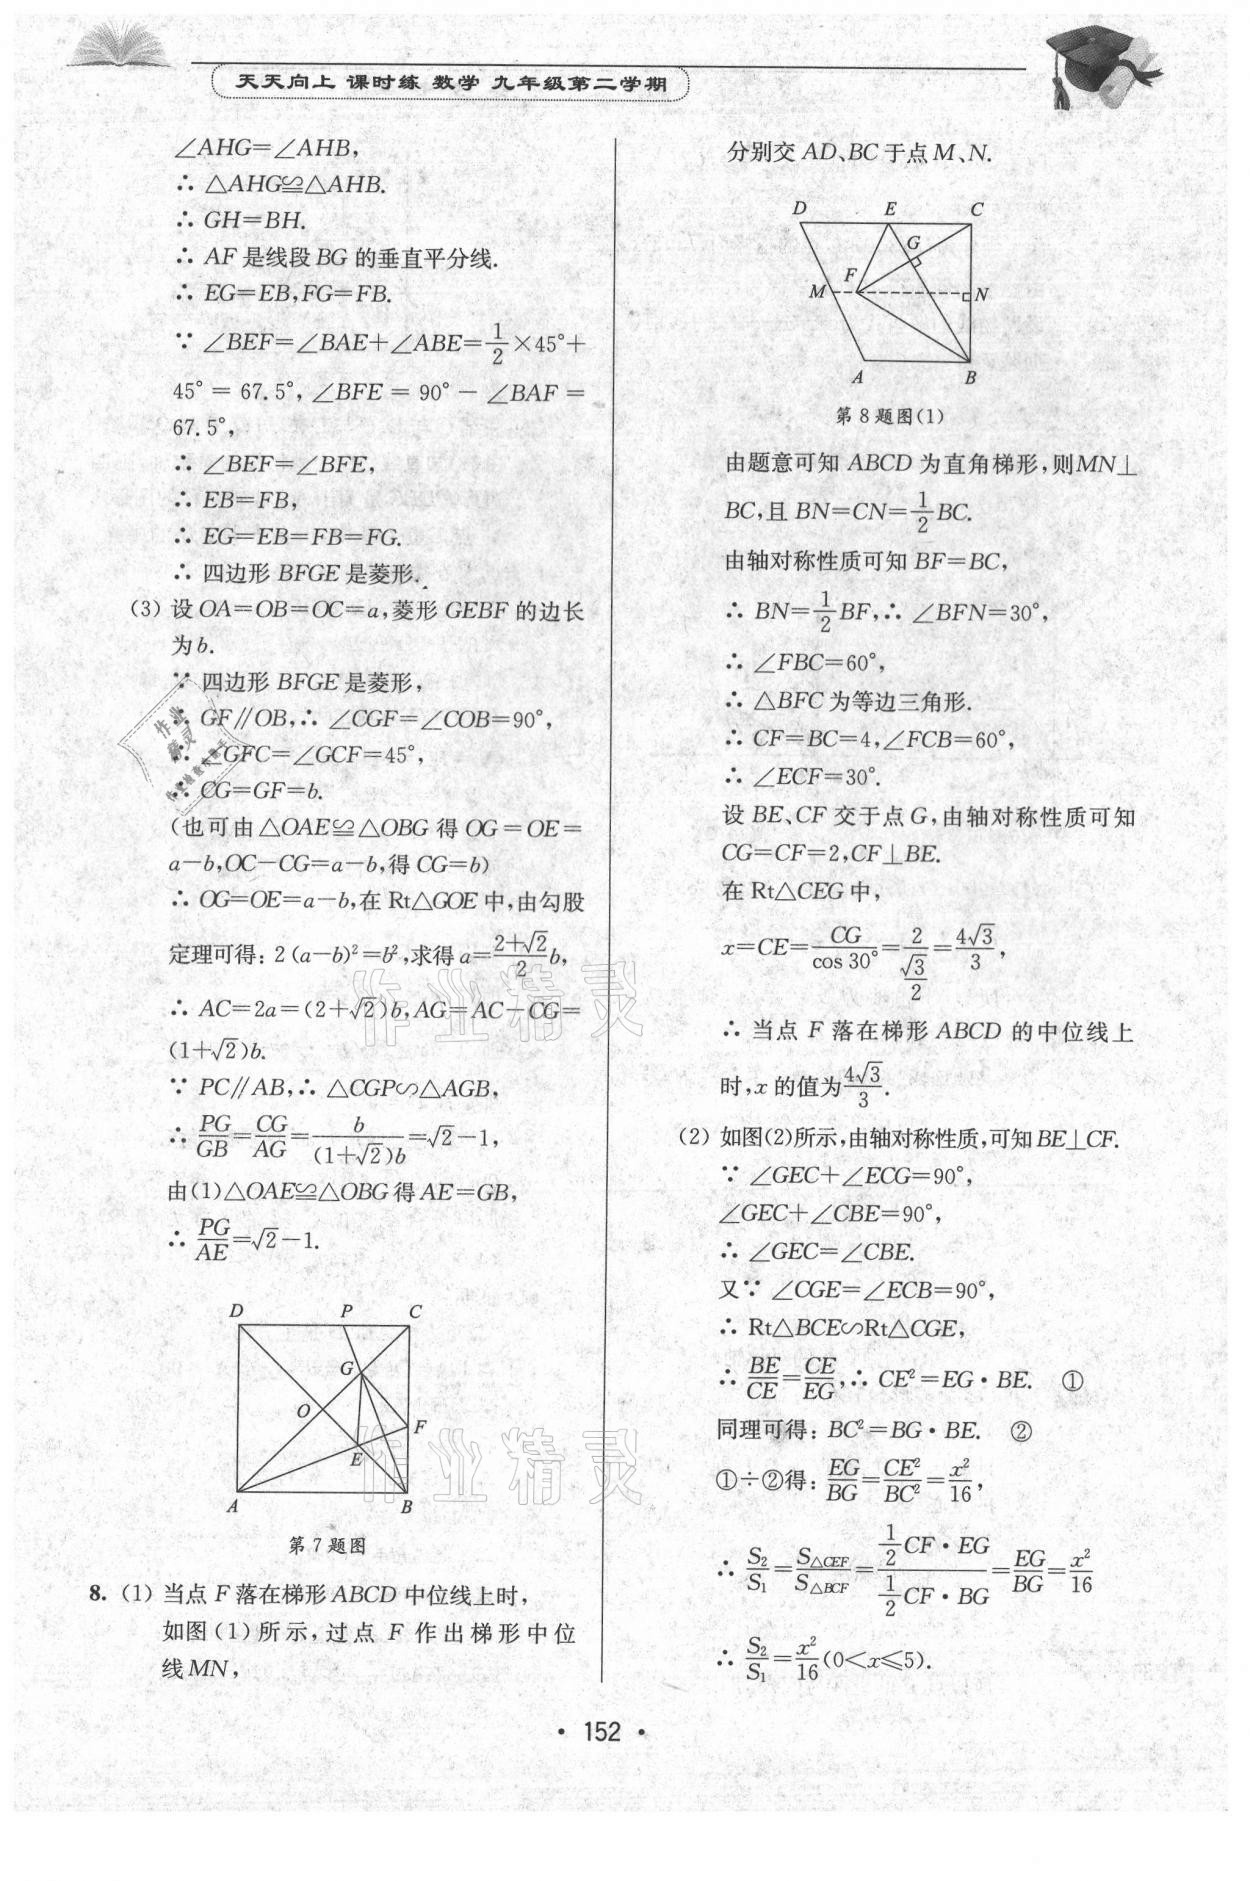 天天向上 课时练 数学 九年级第二学期
∠AHG=∠AHB,
∴ △AHG≌△AHB.
∴ GH=BH.
∴ AF是线段BG的垂直平分线.
∴ EG=EB,FG=FB.
∵ ∠BEF=∠BAE+∠ABE=1/2×45°+
45° = 67.5°,∠BFE = 90° − ∠BAF =
67.5°,
∴ ∠BEF=∠BFE,
∴ EB=FB,
∴ EG=EB=FB=FG.
∴ 四边形BFGE是菱形.
(3) 设OA=OB=OC=a,菱形GEBF的边长
为b.
∵ 四边形BFGE是菱形,
∴ GF∥OB,∴ ∠CGF=∠COB=90°,
∴ ∠GFC=∠GCF=45°,
∴ CG=GF=b.
(也可由△OAE≌△OBG得OG=OE=
a−b,OC−CG=a−b,得CG=b)
∴ OG=OE=a−b,在Rt△GOE中,由勾股
定理可得: 2(a−b)²=b²,求得a=(2+√2)/2 b,
∴ AC=2a=(2+√2)b,AG=AC−CG=
(1+√2)b.
∵ PC∥AB,∴ △CGP∽△AGB,
∴ PG/GB=CG/AG=b/((1+√2)b)=√2−1,
由(1)△OAE≌△OBG得AE=GB,
∴ PG/AE=√2−1.
D P C
G
O
F
E
A B
第7题图
8. (1) 当点F落在梯形ABCD中位线上时,
如图(1)所示,过点F作出梯形中位
线MN,
分别交AD、BC于点M、N.
D E C
G
F
M N
A B
第8题图(1)
由题意可知ABCD为直角梯形,则MN⊥
BC,且BN=CN=1/2BC.
由轴对称性质可知BF=BC,
∴ BN=1/2BF,∴ ∠BFN=30°,
∴ ∠FBC=60°,
∴ △BFC为等边三角形.
∴ CF=BC=4,∠FCB=60°,
∴ ∠ECF=30°.
设BE、CF交于点G,由轴对称性质可知
CG=CF=2,CF⊥BE.
在Rt△CEG中,
x=CE=CG/cos 30°=2/(√3/2)=4√3/3,
∴ 当点F落在梯形ABCD的中位线上
时,x的值为4√3/3.
(2) 如图(2)所示,由轴对称性质,可知BE⊥CF.
∵ ∠GEC+∠ECG=90°,
∠GEC+∠CBE=90°,
∴ ∠GEC=∠CBE.
又∵ ∠CGE=∠ECB=90°,
∴ Rt△BCE∽Rt△CGE,
∴ BE/CE=CE/EG,∴ CE²=EG·BE. ①
同理可得: BC²=BG·BE. ②
①÷②得: EG/BG=CE²/BC²=x²/16,
∴ S₂/S₁=S△CEF/S△BCF=(1/2CF·EG)/(1/2CF·BG)=EG/BG=x²/16
∴ S₂/S₁=x²/16(0<x≤5).
· 152 ·
作业精灵
作业精灵
作业精灵